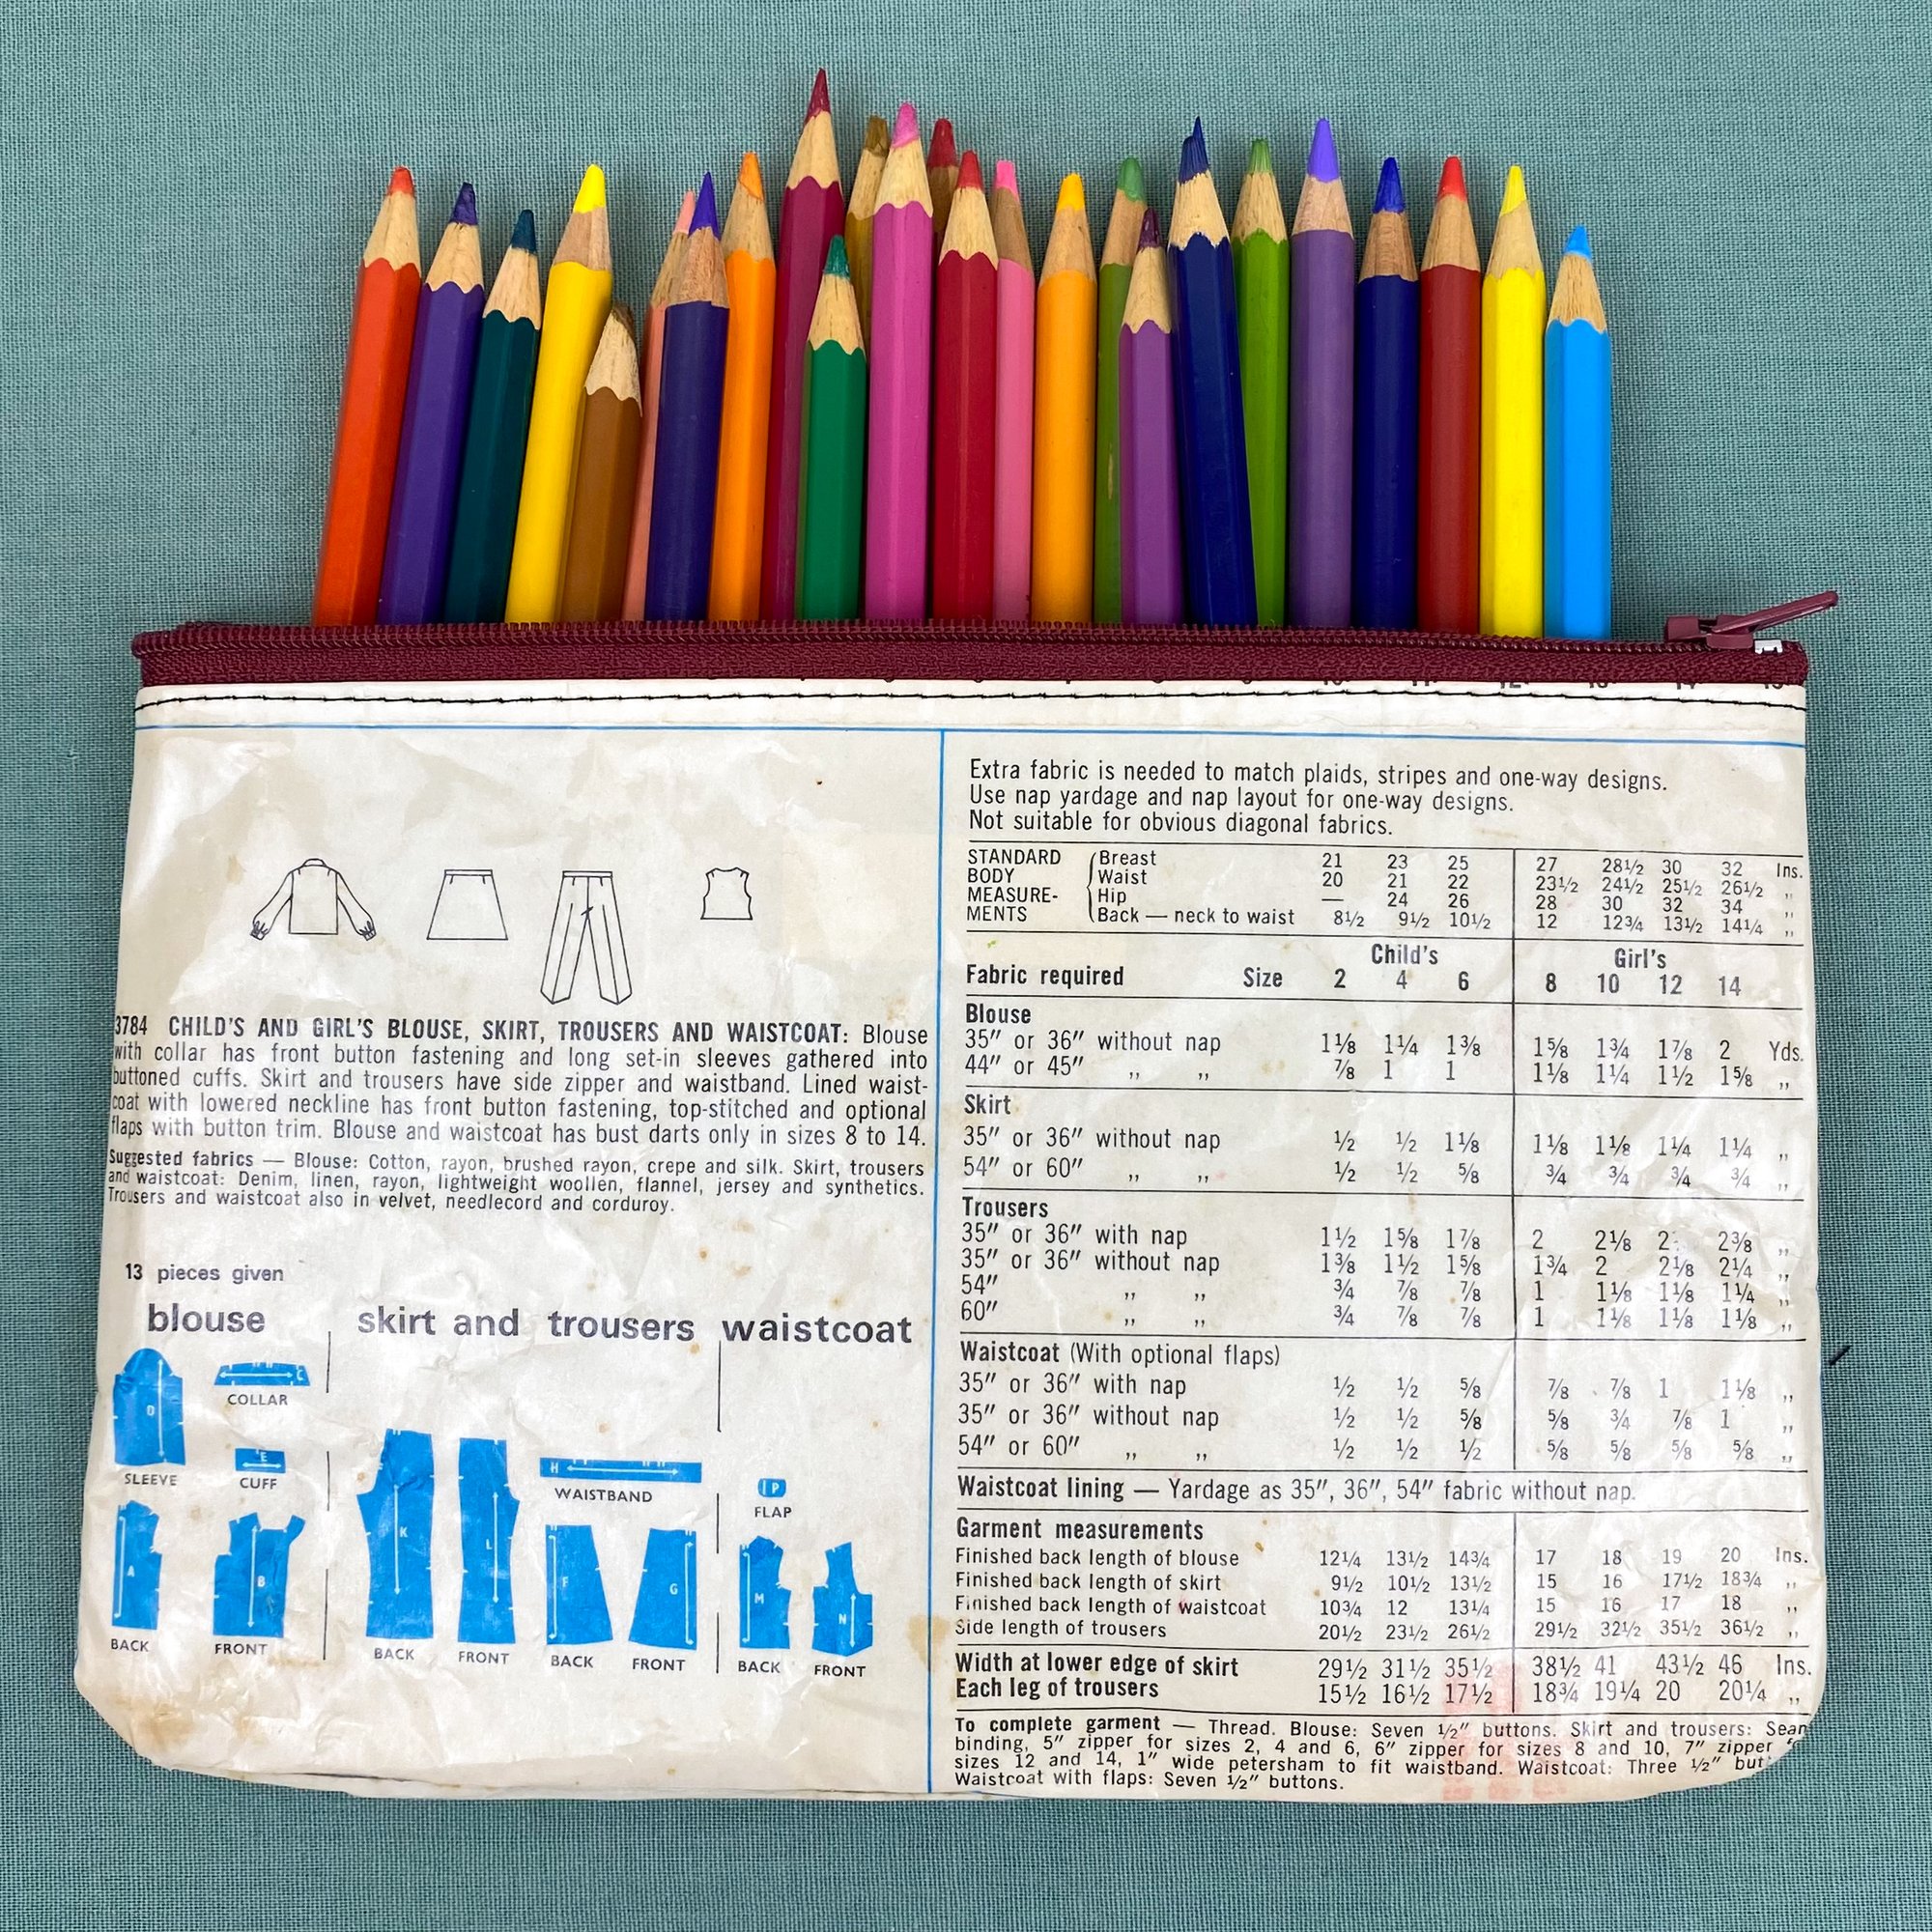 3784 CHILD'S AND GIRL'S BLOUSE, SKIRT, TROUSERS AND WAISTCOAT: Blouse
with collar has front button fastening and long set-in sleeves gathered into
buttoned cuffs. Skirt and trousers have side zipper and waistband. Lined waist-
coat with lowered neckline has front button fastening, top-stitched and optional
flaps with button trim. Blouse and waistcoat has bust darts only in sizes 8 to 14.
Suggested fabrics — Blouse: Cotton, rayon, brushed rayon, crepe and silk. Skirt, trousers
and waistcoat: Denim, linen, rayon, lightweight woollen, flannel, jersey and synthetics.
Trousers and waistcoat also in velvet, needlecord and corduroy.
13 pieces given
blouse
D
SLEEVE
C
COLLAR
E
CUFF
A
BACK
B
FRONT
skirt and trousers
K
BACK
L
FRONT
H
WAISTBAND
F
BACK
G
FRONT
waistcoat
P
FLAP
M
BACK
N
FRONT
Extra fabric is needed to match plaids, stripes and one-way designs.
Use nap yardage and nap layout for one-way designs.
Not suitable for obvious diagonal fabrics.
STANDARD BODY MEASURE-MENTS
Breast 21 23 25 27 28½ 30 32 Ins.
Waist 20 21 22 23½ 24½ 25½ 26½ ,,
Hip — 24 26 28 30 32 34 ,,
Back — neck to waist 8½ 9½ 10½ 12 12¾ 13½ 14¼ ,,
Child's Girl's
Fabric required Size 2 4 6 8 10 12 14
Blouse
35" or 36" without nap 1⅛ 1¼ 1⅜ 1⅝ 1¾ 1⅞ 2 Yds.
44" or 45" ,, ,, ⅞ 1 1 1⅛ 1¼ 1½ 1⅝ ,,
Skirt
35" or 36" without nap ½ ½ 1⅛ 1⅛ 1⅛ 1¼ 1¼ ,,
54" or 60" ,, ,, ½ ½ ⅝ ¾ ¾ ¾ ¾ ,,
Trousers
35" or 36" with nap 1½ 1⅝ 1⅞ 2 2⅛ 2⅜ ,,
35" or 36" without nap 1⅜ 1½ 1⅝ 1¾ 2 2⅛ 2¼ ,,
54" ,, ,, ¾ ⅞ ⅞ 1 1⅛ 1⅛ 1¼ ,,
60" ,, ,, ¾ ⅞ ⅞ 1 1⅛ 1⅛ 1⅛ ,,
Waistcoat (With optional flaps)
35" or 36" with nap ½ ½ ⅝ ⅞ ⅞ 1 1⅛ ,,
35" or 36" without nap ½ ½ ⅝ ⅝ ¾ ⅞ 1 ,,
54" or 60" ,, ,, ½ ½ ½ ⅝ ⅝ ⅝ ⅝ ,,
Waistcoat lining — Yardage as 35", 36", 54" fabric without nap.
Garment measurements
Finished back length of blouse 12¼ 13½ 14¾ 17 18 19 20 Ins.
Finished back length of skirt 9½ 10½ 13½ 15 16 17½ 18¾ ,,
Finished back length of waistcoat 10¾ 12 13¼ 15 16 17 18 ,,
Side length of trousers 20½ 23½ 26½ 29½ 32½ 35½ 36½ ,,
Width at lower edge of skirt 29½ 31½ 35½ 38½ 41 43½ 46 Ins.
Each leg of trousers 15½ 16½ 17½ 18¾ 19¼ 20 20¼ ,,
To complete garment — Thread. Blouse: Seven ½" buttons. Skirt and trousers:
binding, 5" zipper for sizes 2, 4 and 6, 6" zipper for sizes 8 and 10, 7" zipper
sizes 12 and 14, 1" wide petersham to fit waistband. Waistcoat: Three ½"
Waistcoat with flaps: Seven ½" buttons.